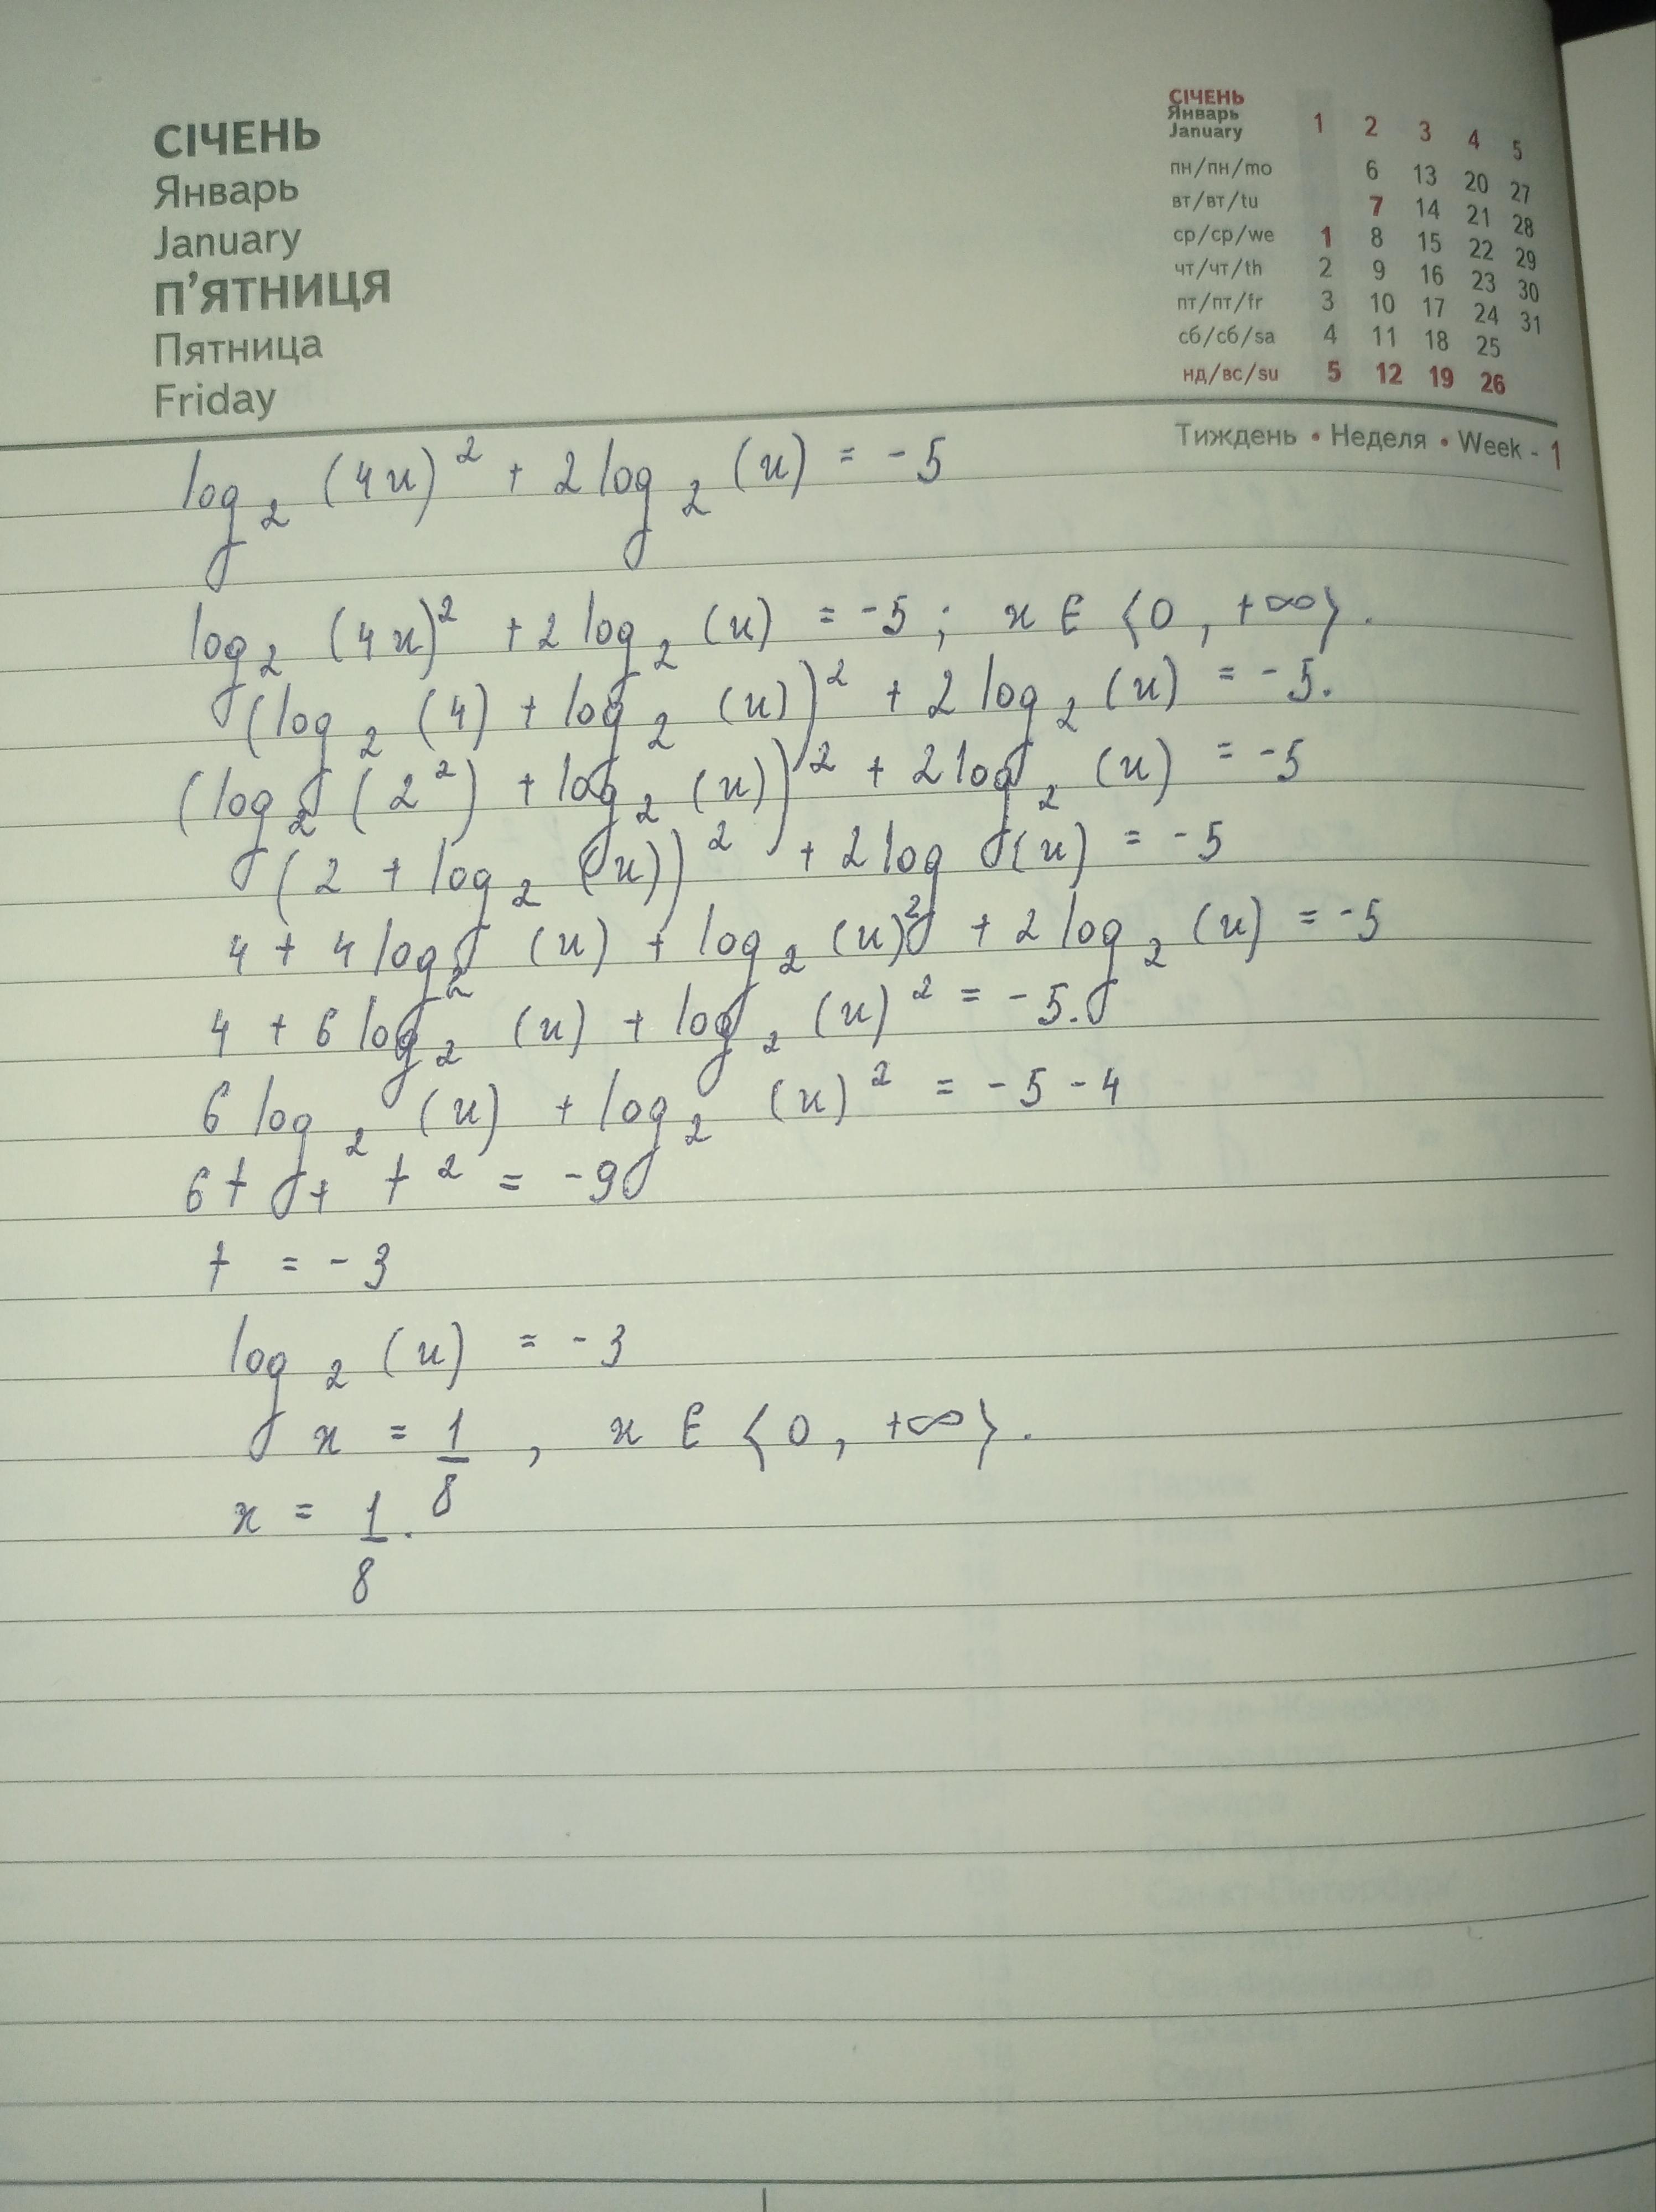 СІЧЕНЬ
Январь
January
П'ЯТНИЦЯ
Пятница
Friday
СІЧЕНЬ
Январь
January 1 2 3 4 5
пн/пн/mo 6 13 20 27
вт/вт/tu 7 14 21 28
ср/ср/we 1 8 15 22 29
чт/чт/th 2 9 16 23 30
пт/пт/fr 3 10 17 24 31
сб/сб/sa 4 11 18 25
нд/вс/su 5 12 19 26
Тиждень • Неделя • Week - 1
log₂ (4x)² + 2 log₂ (x) = -5
log₂ (4x)² + 2 log₂ (x) = -5 ; x ∈ ⟨0, +∞⟩.
(log₂ (4) + log₂ (x))² + 2 log₂ (x) = -5.
(log₂ (2²) + log₂ (x))² + 2 log₂ (x) = -5
(2 + log₂ (x))² + 2 log (x) = -5
4 + 4 log₂ (x) + log₂ (x)² + 2 log₂ (x) = -5
4 + 6 log₂ (x) + log₂ (x)² = -5.
6 log₂ (x) + log₂ (x)² = -5 - 4
6t + t² = -9
t = -3
log₂ (x) = -3
x = 1/8 , x ∈ ⟨0, +∞⟩.
x = 1/8.